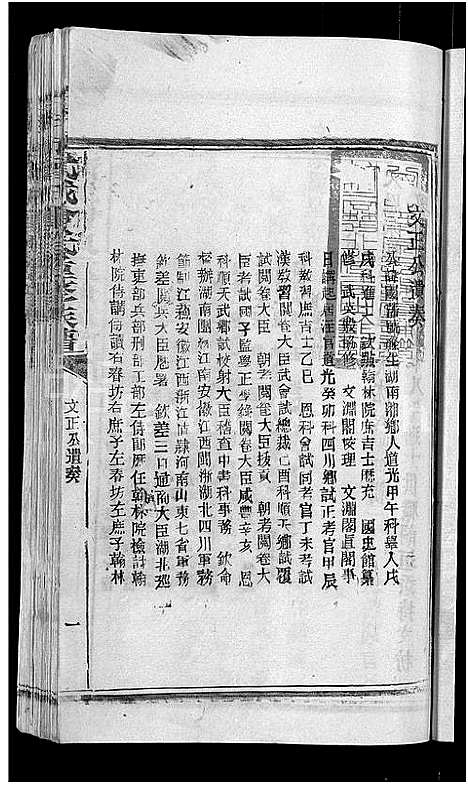 文正公遺奏
公諱國藩號滌生湖南湘鄉人道光甲午科舉人戊
戌科進士欽點翰林院庶吉士歷充 國史館纂
修 武英殿協修 文淵閣校理 文淵閣直閣事
日講起居注官道光癸卯科四川鄉試正考官甲辰
科教習庶吉士乙巳 恩科會試同考官丁未考試
漢教習閱卷大臣武會試總裁己酉科順天鄉試覆
試閱卷大臣 朝考閱卷大臣拔貢 朝考閱卷大
臣考試國子監學正學錄閱卷大臣咸豐辛亥 恩
科順天武鄉試校射大臣稽查中書科事務 欽命
督辦湖南團練江南安徽江西閩浙湖北四川軍務
節制江蘇安徽江西浙江直隸河南山東七省軍務
欽差閱兵大臣歷署 欽差三口通商大臣湖北巡
撫東部兵部刑部工部左侍郎歷任翰林院檢討翰
林院侍講侍讀右春坊右庶子左春坊左庶子翰林
文正公遺奏
一